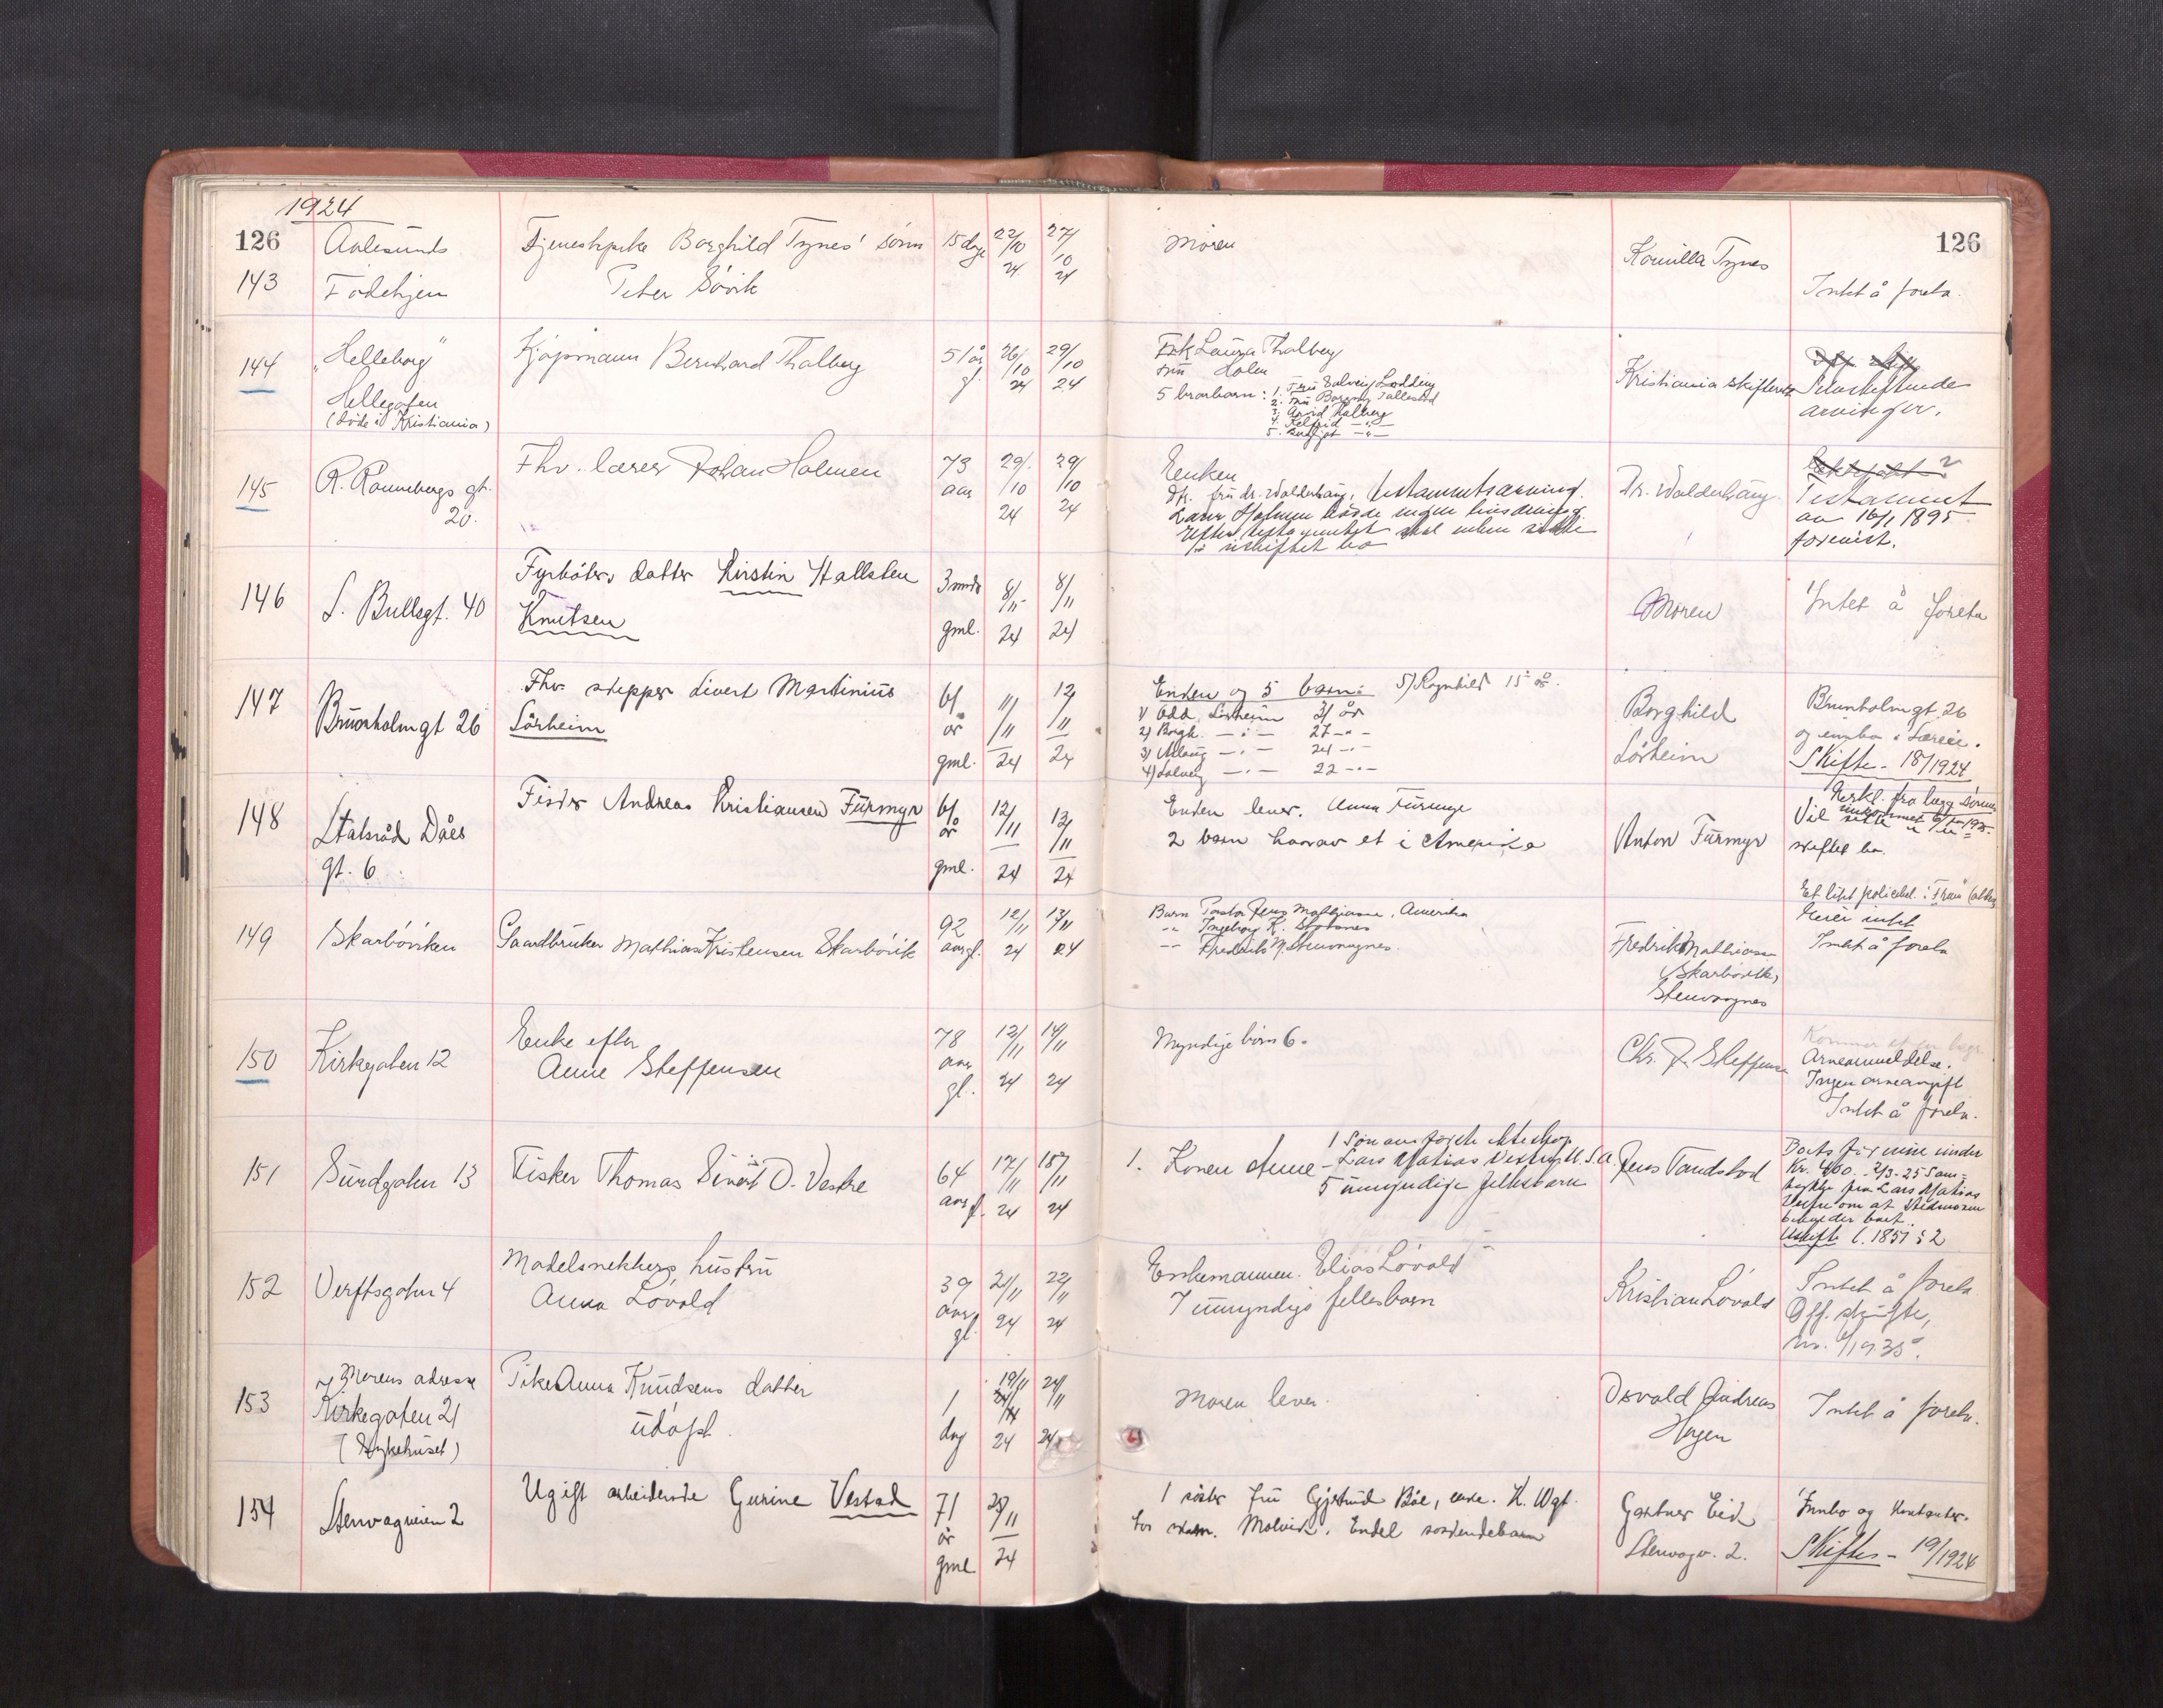 1924
126
143
Aalesunds
Födehjem
Tjenestepike Borghild Tynes' sönn
Peter Sövik
15 dage
22/10 24
27/10 24
Moren
Kamilla Tynes
126
Intet å foreta.
144
"Helleborg"
Hellegaten
(döde i Kristiania)
Kjöpmann Bernhard Thalberg
51 år
gl.
26/10 24
29/10 24
Frk Laura Thalberg
fru Holm
5 brorbarn: 1. Fru Solveig Lödding
2. Fru Borgny
3. Arvid Thalberg
4. — " —
5. — " —
Kristiania skifterett
Selvskiftende
arvinger.
145
R. Rönnebergs gt.
20.
Fhv. lærer Johan Holmen
73
aar
29/10 24
29/10 24
Enken
Dr. fru dr. Walderhaug, testamentsarving.
Lærer Holmen hadde ingen livsarving
Efter testamentet skal enken sitte
i uskiftet bo
Dr. Walderhaug
Testament
av 16/1 1895
forevist.
146
S. Bullsgt. 40
Fyrböters datter Kirstin Hallsten
Knutsen
3 mndr
gml.
8/11 24
8/11 24
Moren
Intet å foreta
147
Brunholmgt 26
Fhv. skipper Sivert Martinius
Lörheim
61
år
gml.
11/11 24
12/11 24
Enken og 5 barn: 5) Ragnhild 15 år.
1) Odd Lörheim 31 år
2) Borgh. — " — 27 — " —
3) Aslaug — " — 24 — " —
4) Solveig — " — 22 — " —
Borghild
Lörheim
Brunholmgt 26
og innbo i Læreie.
Skifte - 18/1924
148
Stålsråd Dåes
gt. 6
Fisker Andreas Kristiansen Furmyr
61
år
gml.
12/11 24
13/11 24
Enken lever. Anna Furmyr
2 barn hvorav et i Amerika
Anton Furmyr
Vil sitte i u-
skiftet bo.
149
Skarböviken
Gaardbruker Mathias Kristensen Skarbövik
92
aar gl.
12/11 24
13/11 24
Barn Pastor Jens Mathiassen, Amerika
" Ingeborg K.
" Fredrik M. Stenvaagnes
Fredrik Mathiassen
Skarbövik,
Stenvaagnes
Eier intet
Intet å foreta
150
Kirkegaten 12
Enke efter
Anne Steffensen
78
aar
gl.
12/11 24
14/11 24
Myndige börn 6.
Chr. P. Steffensen
Kommer efter begr.
Arveanmeldelse.
Ingen arveavgift
Intet å foreta.
151
Sundgaten 13
Fisker Thomas Sivert O. Vestre
64
aar gl.
17/11 24
18/11 24
1 sön av förste ekteskap
1. Konen Anne - Lars Matias Vestre U.S.A.
5 umyndige fellesbarn
Jens Tandstad
Boets formue under
Kr. 400.- 2/3-25 Sam-
tykke fra Lars Matias
Vestre om at stedmoren
beholder boet.
Uskifte l. 1851 § 2
152
Verftsgaten 4
Modelsnekkers hustru
Anna Lövold
39
aar
gl.
21/11 24
22/11 24
Enkemannen. Elias Lövold
7 umyndige fellesbarn
Kristian Lövold
Intet å foreta
Off. skifte,
no. 1/1935.
153
Morens adresse
Kirkegaten 21
(Sykehuset)
Pike Anna Knudsens datter
udöpt.
1
dag
19/11 24
24/11 24
Moren lever.
Osvald Andreas
Hagen
Intet å foreta.
154
Stenvagveien 2
Ugift arbeiderske Gurine Vestad
71
år
gml
25/11 24
1 söster fru Gjertrud Böe, enke. K. Wgt.
bor sam. Molvik. Endel söskendebarn
Gartner Eid
Stenvagv. 2.
Innbo og kontanter.
Skifte - 19/1924